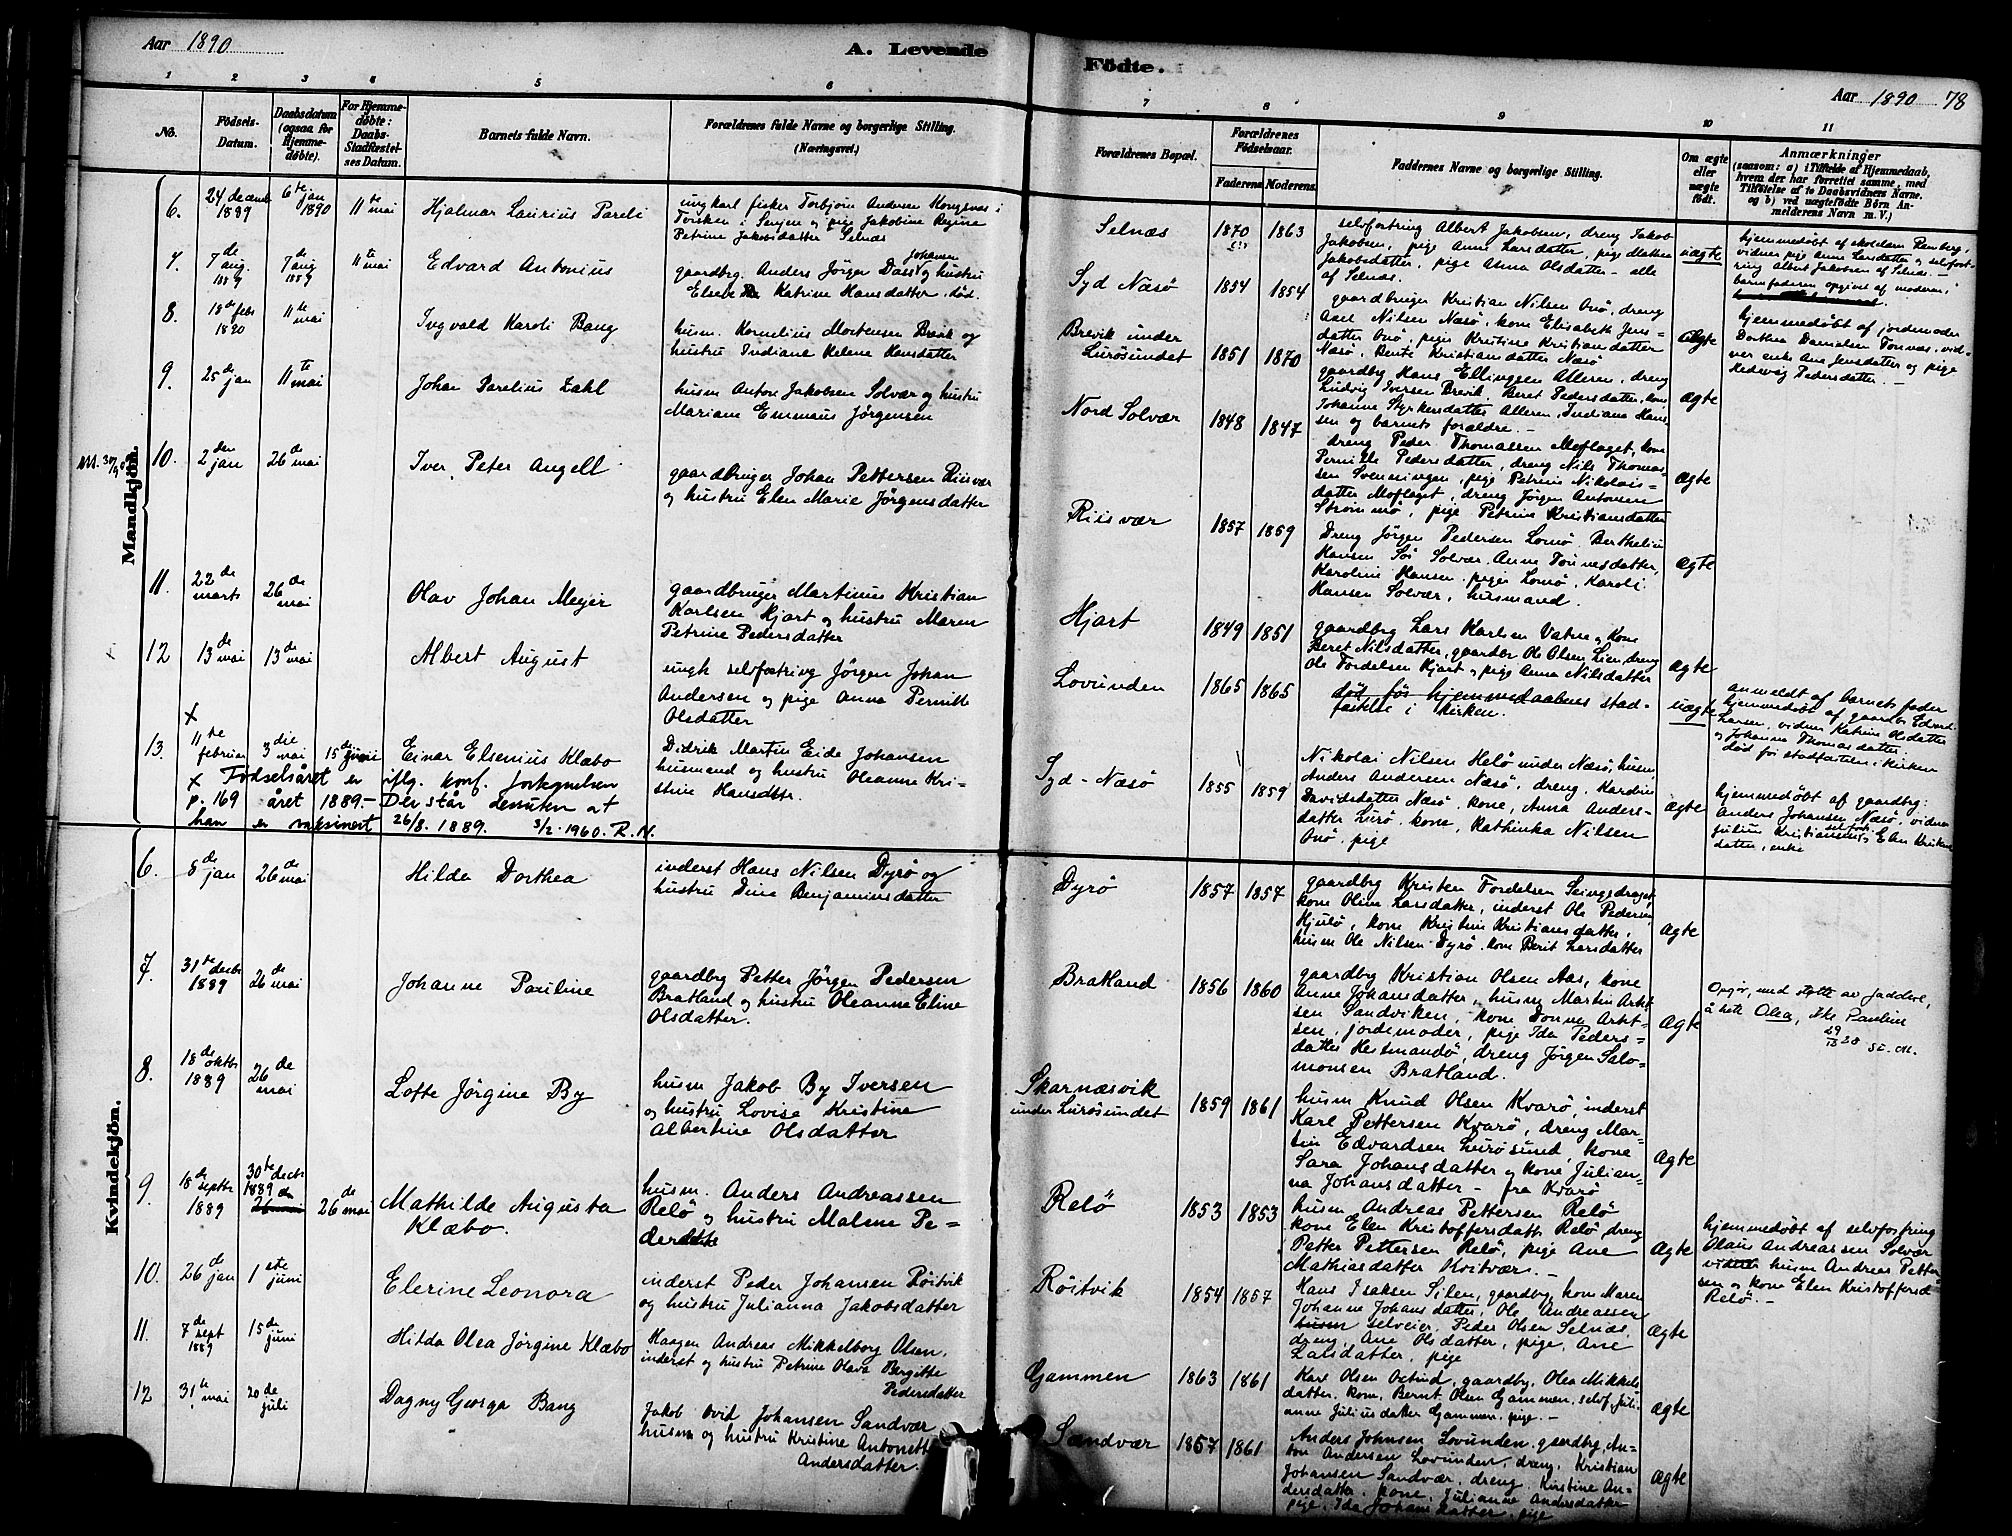 Aar 1890
A. Levende
Födte.
Aar 1890 78
1 2 3 4 5 6
7 8 9 10 11
No.
Födsels-Datum.
Daabsdatum (ogsaa for Hjemmedøbte).
For Hjemmedøbte: Daabs-Stadfæstelses Datum.
Barnets fulde Navn.
Forældrenes fulde Navne og borgerlige Stilling.
(Næringsvei.)
Forældrenes Bopæl.
Forældrenes Födselsaar.
Faderens. Moderens.
Faddernes Navne og borgerlige Stilling.
Om ægte eller uægte født.
Anmærkninger
(saasom: a) i Tilfælde af Hjemmedaab, hvem der har forrettet samme, med Tilföielse af to Daabsvidners Navne, og b) ved uægtefödte Börn Anmelderens Navn m. V.)
Mandkjön.
6. 24 decemb 1889 6te jan 1890 11te mai Hjalmar Laurius Pareli
ungkarl fisker Torbjörn Andersen Kongsnes i
Torsken i Senjen og pige Jakobine Regine
Petrine Jakobsdatter Selnæs
Selnæs 1870 1863
selvfostring Albert Jakobsen, dreng Jakob
Jakobsen, pige Anne Larsdatter, pige Mathea
Jakobsdatter, pige Anna Olsdatter - alle
af Selnæs.
uægte
hjemmedøbt af skolelærer Renberg,
vidner pige Anne Larsdatter og selvfost-
ring Albert Jakobsen af Selnæs. -
barnefaderen opgivet af moderen.
7. 7de aug. 1889 7de aug 1889 11te mai Edvard Antonius
gaardbrg. Anders Jörgen Dass Johansen og hustru
Elsebe Katrine Hansdatter. död.
Syd Næsö 1854 1854
gaardbruger Kristian Nilsen Onö, dreng
Axel Nilsen Næsö, kone Elisabeth Jens-
datter Onö, pige Kristine Kristiansdatter
Næsö, Bente Kristiansdatter Næsö
Ægte
hjemmedøbt af jordemoder
Dorthea Danielsen Tonnes, vid-
ner enke Ane Jensdatter og pige
Hedevig Pedersdatter. -
8. 18de feb 1890 11te mai Ingvald Karoli Bang
husm. Kornelius Mortensen Brevik og
hustru Indiane Helene Hansdatter
Brevik under
Lurösundet 1851 1870
gaardbg Hans Ellingsen Alleren, dreng
Ludvig Iversen Brevik, Beret Pedersdatter, kone
Johanne Styrkersdatter Alleren, Indiana Han-
sen og barnets forældre. -
Ægte
9. 25de jan 11te mai Johan Parelius Zahl
husm Anton Jakobsen Solvær og hustru
Mariane Emmaus Jörgensen
Nord Solvær 1848 1847
dreng Peder Thomassen Moflaget, kone
Pernille Pedersdatter, dreng Nils Thomas-
sen Svenningen, pige Petrine Nikolais-
datter Moflaget, dreng Jörgen Antonsen
Strömmö, pige Petrine Kristiansdatter
Ægte
10. 2den jan 26de mai Iver Peter Angell
gaardbruger Johan Pettersen Riisvær
og hustru Elen Marie Jörgensdatter
Riisvær 1857 1859
Dreng Jörgen Pedersen Lomö. Berthelius
Hansen Sör Solvær. Anne Tönnesdatter,
Karoline Hansen. piger Lomö. Karoli
Hansen Solvær, husmand.
Ægte
11. 22de marts 26de mai Olav Johan Meyer
gaardbruger Martinus Kristian
Karlsen Hjart og hustru Maren
Petrine Pedersdatter
Hjart 1849 1851
gaardbrg Lars Karlsen Vatne og kone
Beret Nilsdatter, gaardbr Ole Olsen Lien, dreng
Ole Tordelsen Hjart og pige Anna Nilsdatter
Ægte
12 13de mai 13de mai Albert August
ungk selvfostring Jörgen Johan
Andersen og pige Anna Pernille
Olsdatter
Lovunden 1865 1865
död, för hjemmedaabens stad-
fæstelse i kirken.
uægte
anmeldt af barnets fader
hjemmedøbt af gaardbr Edvard
Larsen, vidner Katrine Olsdatter
og Johanna Thomasdatter.
död för stadfæstelsen i kirken
13. x 11te februar 3die mai 15de juni Einar Elsenius Klæbo
Didrik Martin Eide Johansen
husmand og hustru Oleanne Kri-
stine Hansdttr.
Syd-Næsö 1855 1859
Nikolai Nilsen Helö under Næsö, husm,
Anders Andersen Næsö, dreng, Karoline
Davidsdatter Næsö, kone, Anna Anders-
datter Lurö, kone, Kathinka Nilsen
Onö, pige
Ægte
hjemmedøbt af gaardbg:
Anders Johansen Næsö, vidner
Julius Kristiansen, selvfost, Elen Eriks-
datter, enke
x Födselsåret er iflg. konf. forkynnelsen
p. 169 året 1889. - Der står dessuten at
han er vaksinert 26/8. 1889. 3/2. 1960. R. N.
Kvindekjön.
6. 8de jan 26de mai Hilda Dorthea
inderst Hans Nilsen Dyrö og
hustru Dine Benjaminsdatter
Dyrö 1857 1857
gaardbrg Kristen Tordelsen Seingsdraget,
kone Oline Larsdatter, inderst Ole Pedersen
Hjulö, kone Kristine Kristiansdatter,
husm Ole Nilsen Dyrö. kone Berit Larsdatter
Ægte
7. 31te decbr 1889 26de mai Johanne Pauline
gaardbrg Petter Jörgen Pedersen
Bratland og hustru Oleanne Eline
Olsdatter.
Bratland 1856 1860
gaardbg Kristian Olsen Aas, kone
Anne Johansdatter, husm Martin Arnt-
sen Sandviken, kone Donna Arnt-
sen, jordemoder, pige Ida Peders-
datter Hestmandö, dreng Jörgen Salo-
monsen Bratland.
Ægte
Opgir, med støtte av faddere,
å hete Olea, ikke Pauline
8. 18de oktbr 1889 26de mai Lofte Jörgine By
husm Jakob By Iversen
og hustru Lovise Kristine
Albertine Olsdatter
Skarnæsvik
under Lurösundet 1859 1861
husm Knud Olsen Kvarö, inderst
Karl Pettersen Kvarö, dreng Mar-
tin Edvardsen Lurösund, kone
Sara Johansdatter og kone Julian-
na Johansdatter - fra Kvarö
Ægte
9. 18de septbr 1889 30te decbr 1889 26de mai Mathilde Augusta
Klæbo.
husm. Anders Andreassen
Relö og hustru Malene Pe-
dersdatter
Relö 1853 1853
husm Andreas Pettersen Relö
kone Elen Kristoffersdatter Relö, dreng
Petter Pettersen Relö, pige Ane
Mathiasdatter Hvitvær. -
Ægte
hjemmedøbt af selvfostring
Olaus Andreassen Solvær
vidner husm Andreas Petter-
sen og kone Elen Kristoffersd
Relö. -
10. 26de jan 1ste juni Elerine Leonora
inderst Peder Johansen Röitvik
og hustru Julianna Jakobsdatter
Röitvik 1854 1857
Hans Isaksen Silen, gaardbg, kone Maren
Johanne Johansdatter, Ole Andreassen
selveier, Peder Olsen Selnæs,
dreng, Ane Olsdatter, pige, Ane
Larsdatter, pige
Ægte
11. 7de sept 1889 15de juni Hilda Olea Jörgine Klæbo
Haagen Andreas Mikkelborg Olsen,
inderst og hustru Petrine Olava Bergitte
Pedersdatter
Gammen 1863 1861
Karl Olsen, gaardbg, Olea Mikkels-
datter, kone, Bernt Olsen Gammen, selvf, Juli-
anne Juliusdatter Gammen, pige. -
Ægte
12 31te mai 20de juli Dagny Georga Bang
Jakob Johansen Sandvær
husm og hustru Kristine Antonette
Andersdatter.
Sandvær 1857 1861
Anders Johnsen Lovunden, gaardbg, An-
ton Andersen Lovunden, dreng, Kristian
Johansen Sandvær, dreng, Kristine An-
dersdatter, kone, Julianne Andersdatter
pige, Ida Johansdatter, pige
Ægte